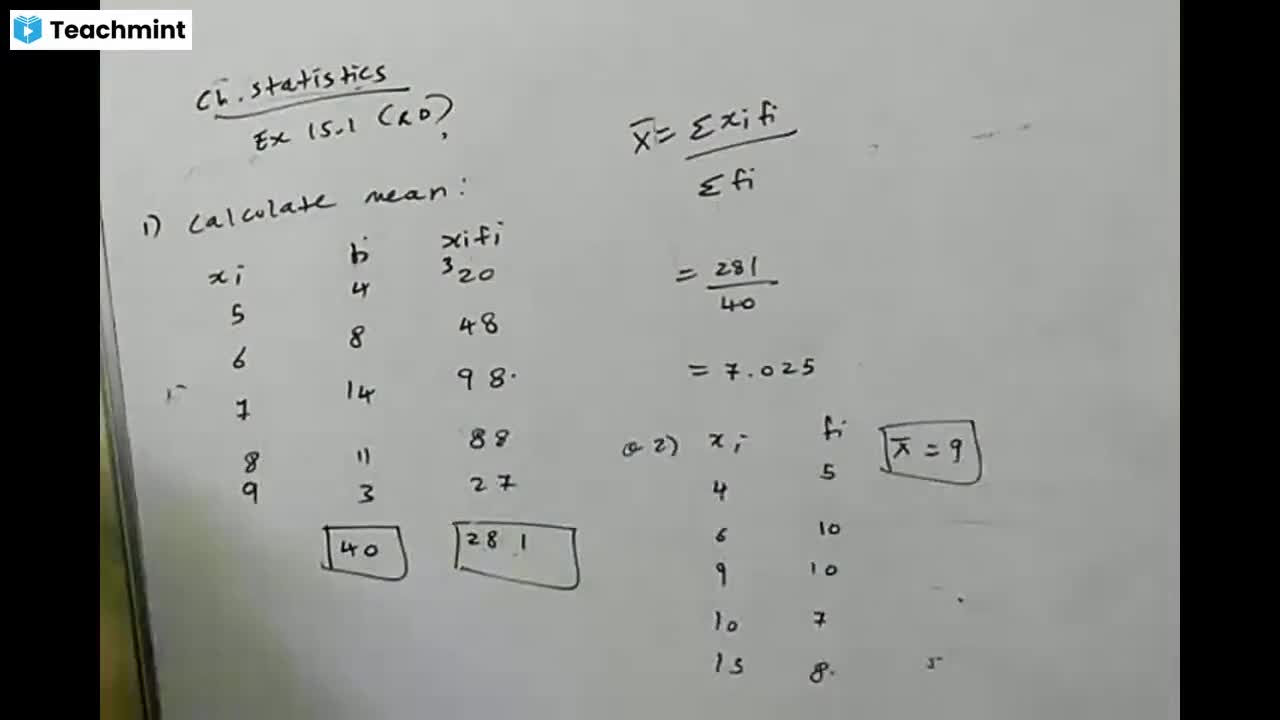 Teachmint
Ch. statistics
Ex 15.1 (RD)
1) Calculate mean:
xi fi xifi
5 4 ³20
6 8 48
7 14 98.
8 11 88
9 3 27
40 281
x̄ = Σxifi / Σfi
= 281 / 40
= 7.025
Q 2) xi fi x̄ = 9
4 5
6 10
9 10
10 7
15 8.